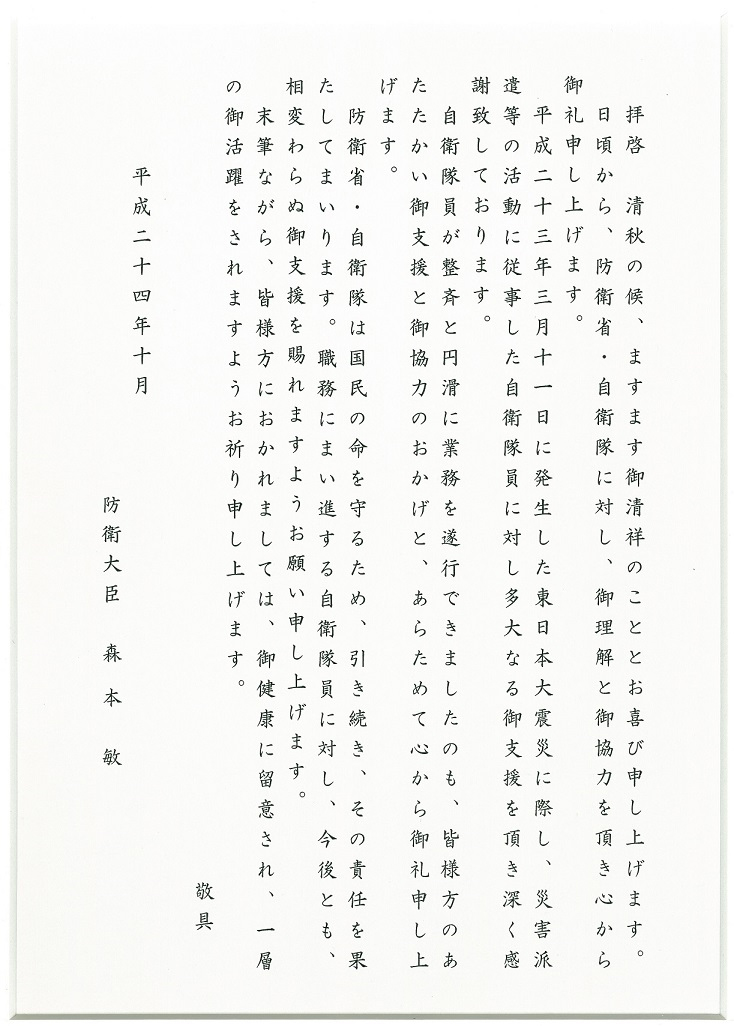 拝啓　清秋の候、ますます御清祥のこととお喜び申し上げます。
日頃から、防衛省・自衛隊に対し、御理解と御協力を頂き心から
御礼申し上げます。
平成二十三年三月十一日に発生した東日本大震災に際し、災害派
遣等の活動に従事した自衛隊員に対し多大なる御支援を頂き深く感
謝致しております。
自衛隊員が整斉と円滑に業務を遂行できましたのも、皆様方のあ
たたかい御支援と御協力のおかげと、あらためて心から御礼申し上
げます。
防衛省・自衛隊は国民の命を守るため、引き続き、その責任を果
たしてまいります。職務にまい進する自衛隊員に対し、今後とも、
相変わらぬ御支援を賜れますようお願い申し上げます。
末筆ながら、皆様方におかれましては、御健康に留意され、一層
の御活躍をされますようお祈り申し上げます。
敬具
平成二十四年十月
防衛大臣　森本　敏